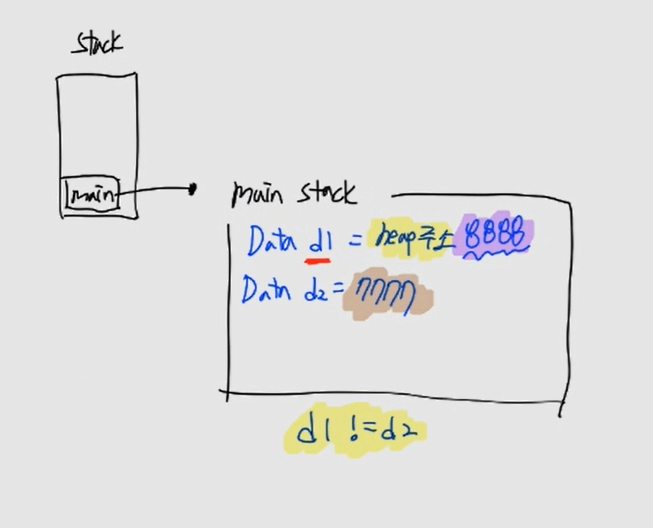 stack
main
main stack
Data d1 = heap주소 8888
Data d2 = 7777
d1 != d2